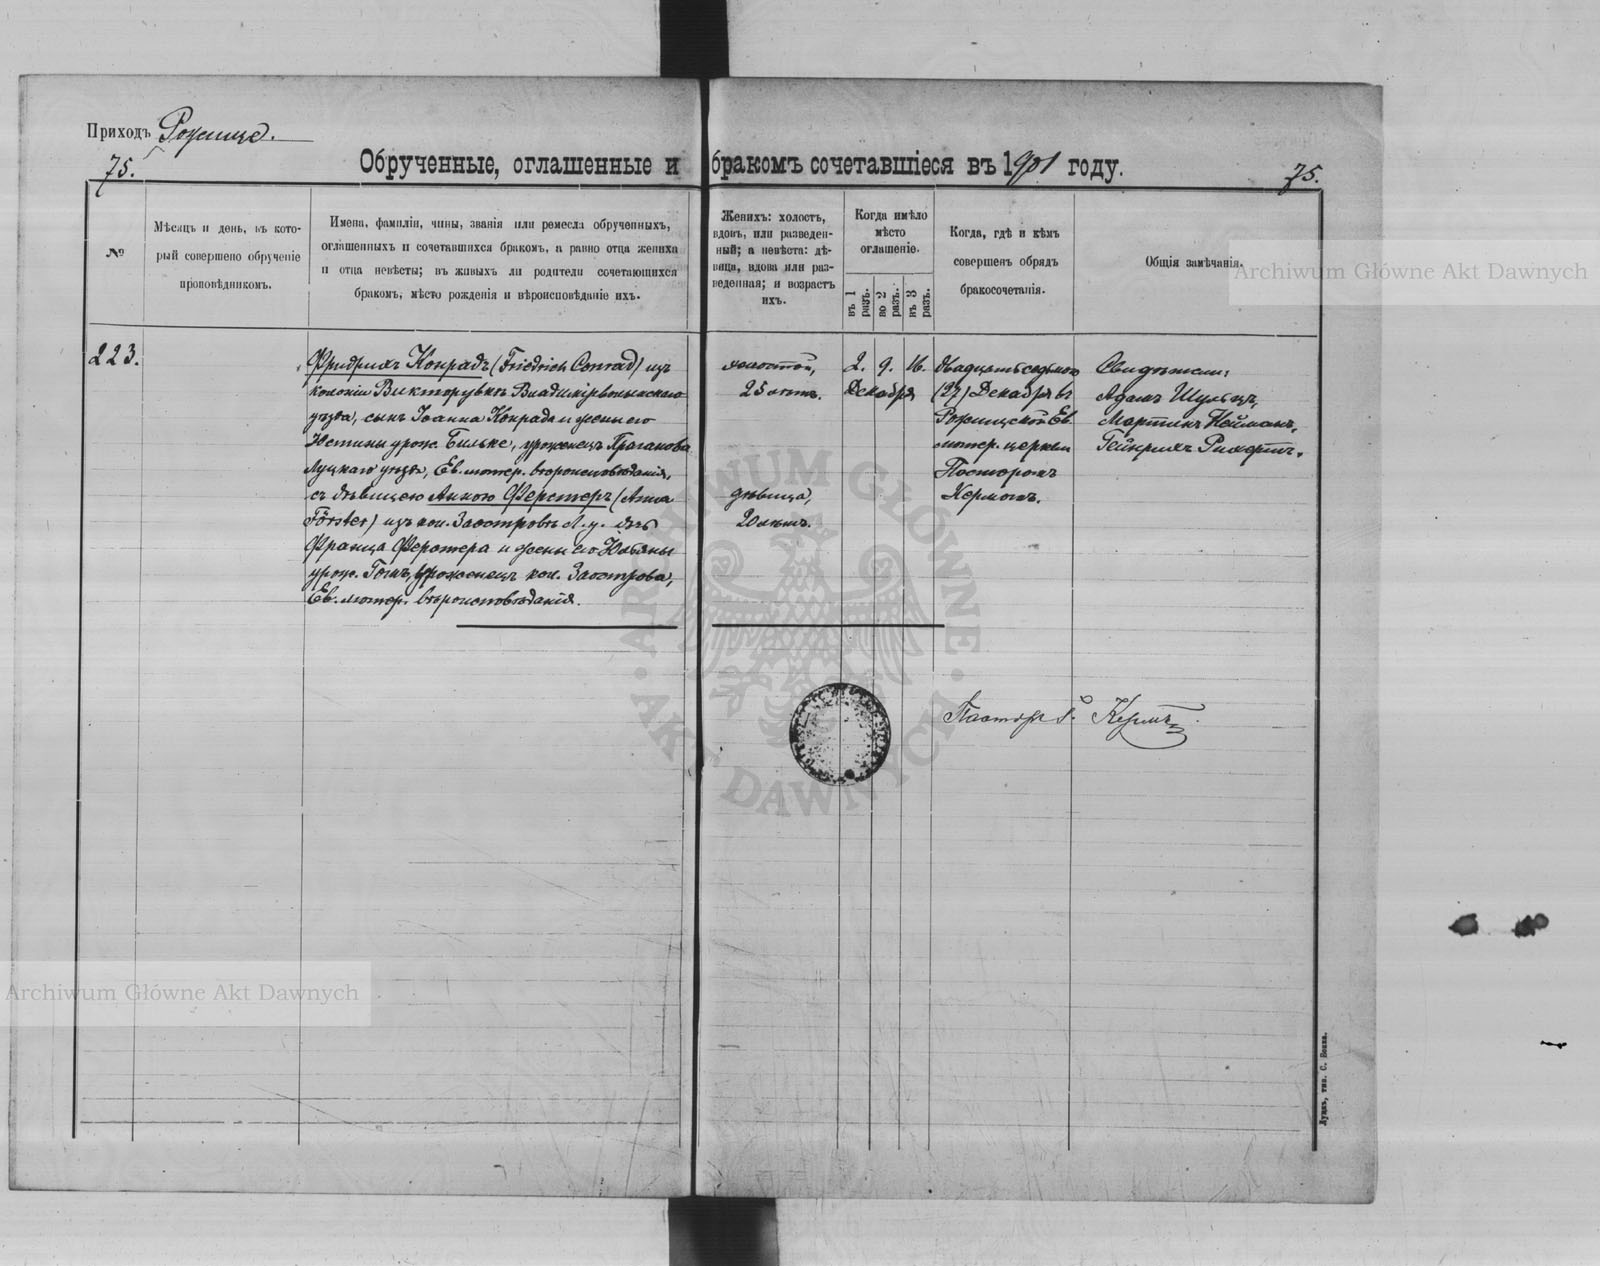 Приходъ Рожище.
75.
Обрученные, оглашенные и бракомъ сочетавшіеся въ 1901 году.
75.
№
Мѣсяцъ и день, въ кото-
рый совершено обрученіе
проповѣдникомъ.
Имена, фамиліи, чины, званія или ремесла обрученныхъ,
оглашенныхъ и сочетавшихся бракомъ, а равно отца жениха
и отца невѣсты; въ живыхъ ли родители сочетающихся
бракомъ, мѣсто рожденія и вѣроисповѣданіе ихъ.
Женихъ: холостъ,
вдовъ, или разведен-
ный; а невѣста: дѣ-
вица, вдова или раз-
веденная; и возрастъ
ихъ.
Когда имѣло
мѣсто
оглашеніе.
въ 1
разъ.
во 2
разъ.
въ 3
разъ.
Когда, гдѣ и кѣмъ
совершенъ обрядъ
бракосочетанія.
Общія замѣчанія.
223.
Фридрихъ Конрадъ (Friedrich Conrad) изъ
колоніи Викторувкъ Владимірволынскаго
уѣзда, сынъ Іоанна Конрада и жены его
Юстины урож. Бильке, уроженецъ
Луцкаго уѣзда, Ев. лютер. вѣроисповѣданія,
съ дѣвицею Анною Ферстеръ (Anna
Förster) изъ кол. Заостровъ Л. у. дочь
Франца Ферстера и жены его Юльяны
урож. уроженецъ кол. Заострова,
Ев. лютер. вѣроисповѣданія.
холостой,
25 лѣтъ.
дѣвица,
20 лѣтъ.
2. 9. 16.
Декабря
Двадцать седьмого
(27) Декабря въ
Рожищской Ев.
лютер. церкви
Пасторомъ
Кермомъ.
Свидѣтели:
Адамъ Шульцъ,
Мартинъ Нейманъ,
Гейнрихъ Рихертъ.
Пасторъ Кермъ
Луцкъ, тип. С. Бокка.
Archiwum Główne Akt Dawnych
Archiwum Główne Akt Dawnych
ARCHIWUM GŁÓWNE · AKT DAWNYCH ·